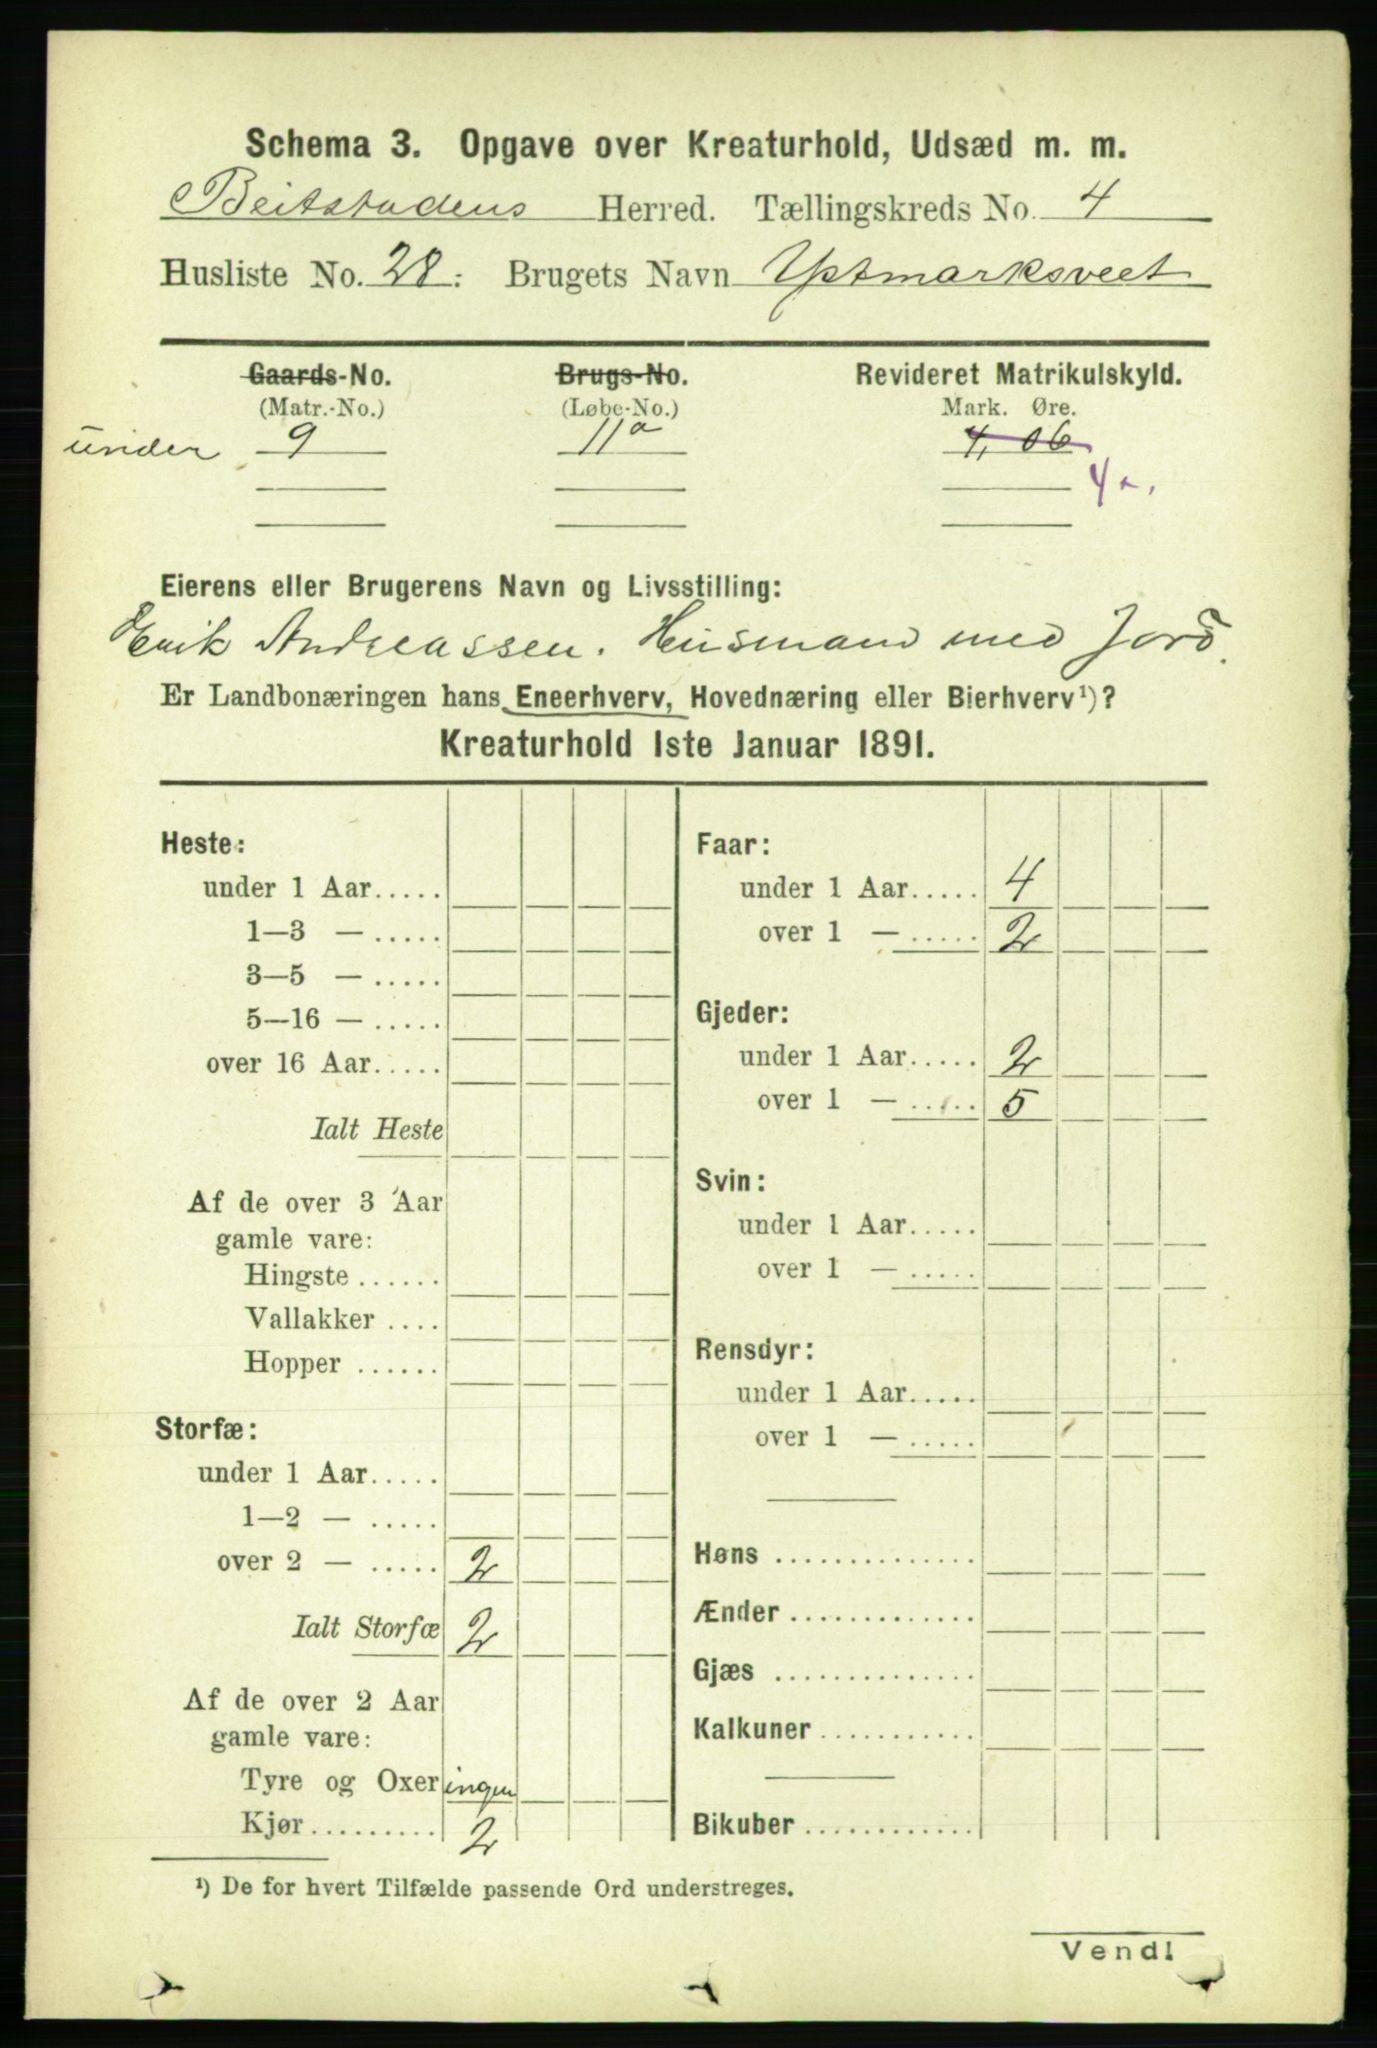 Schema 3. Opgave over Kreaturhold, Udsæd m. m.
Beitstadens Herred. Tællingskreds No. 4
Husliste No. 28. Brugets Navn
Gaards-No. Brugs-No. Revideret Matrikulskyld.
(Matr.-No.) (Løbe-No.) Mark. Øre.
under 9 11a 4, 06
Eierens eller Brugerens Navn og Livsstilling:
Erik Andreassen. Husmand med Jord.
Er Landbonæringen hans Eneerhverv, Hovednæring eller Bierhverv¹)?
Kreaturhold 1ste Januar 1891.
Heste:
under 1 Aar.....
1—3 — .....
3—5 — .....
5—16 — .....
over 16 Aar.....
Ialt Heste
Af de over 3 Aar
gamle vare:
Hingste ......
Vallakker ....
Hopper ......
Storfæ:
under 1 Aar.....
1—2 — .....
over 2 — ..... 2
Ialt Storfæ 2
Af de over 2 Aar
gamle vare:
Tyre og Oxer ingen
Kjør......... 2
Faar:
under 1 Aar..... 4
over 1 — ..... 2
Gjeder:
under 1 Aar..... 2
over 1 — ..... 5
Svin:
under 1 Aar.....
over 1 — .....
Rensdyr:
under 1 Aar.....
over 1 — .....
Høns ..............
Ænder .............
Gjæs ..............
Kalkuner ...........
Bikuber ............
¹) De for hvert Tilfælde passende Ord understreges.
Vend!